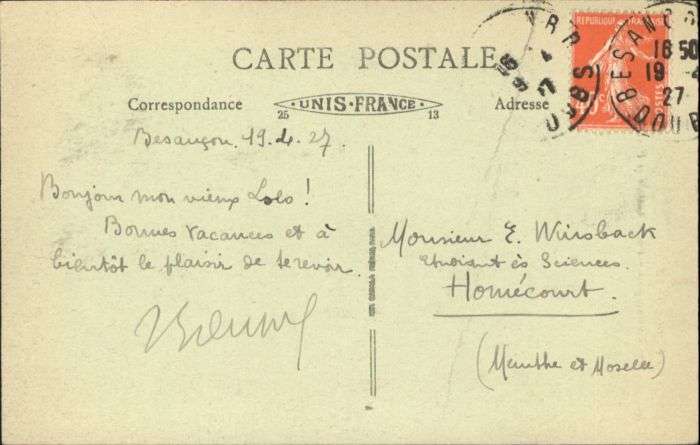 CARTE POSTALE
Correspondance
UNIS-FRANCE
25
13
Adresse
REPUBLIQUE FRANCAISE
BESANCON
16 50
19
27
DOUBS
Besançon, 19.4.27.
Bonjour mon vieux Lolo !
Bonnes vacances et à
bientôt le plaisir de te revoir.
Monsieur E. Wirsback
Etudiant ès Sciences.
Homécourt.
(Meurthe et Moselle)